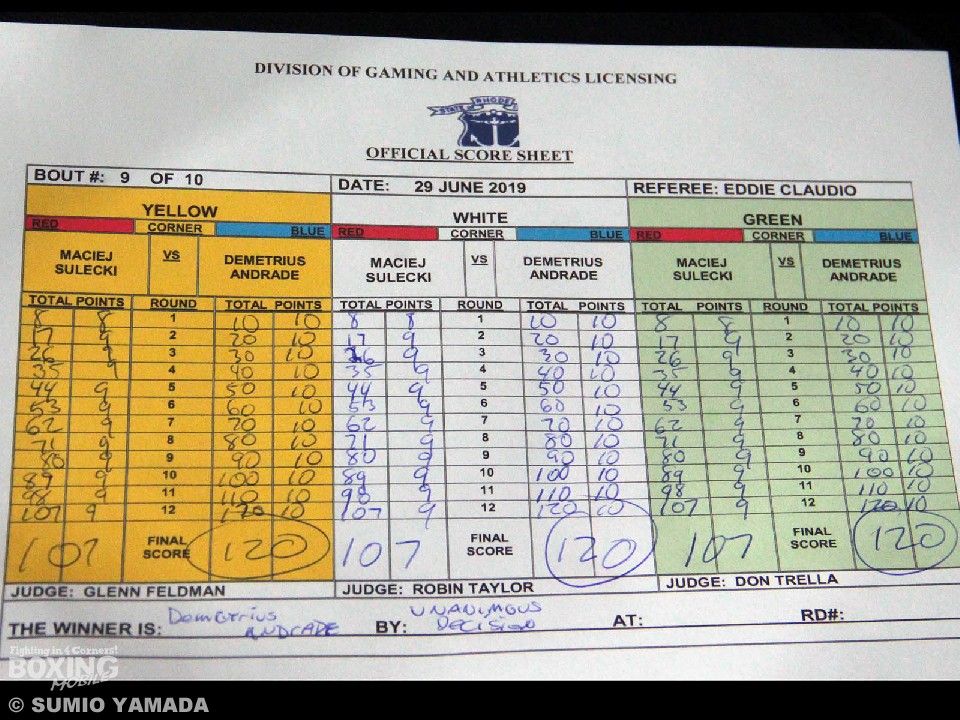 DIVISION OF GAMING AND ATHLETICS LICENSING
STATE of RHODE
OFFICIAL SCORE SHEET
BOUT #: 9 OF 10 DATE: 29 JUNE 2019 REFEREE: EDDIE CLAUDIO
YELLOW WHITE GREEN
RED CORNER BLUE RED CORNER BLUE RED CORNER BLUE
MACIEJ SULECKI VS DEMETRIUS ANDRADE MACIEJ SULECKI VS DEMETRIUS ANDRADE MACIEJ SULECKI VS DEMETRIUS ANDRADE
TOTAL POINTS ROUND TOTAL POINTS TOTAL POINTS ROUND TOTAL POINTS TOTAL POINTS ROUND TOTAL POINTS
8 8 1 10 10 8 8 1 10 10 8 8 1 10 10
17 9 2 20 10 17 9 2 20 10 17 9 2 20 10
26 9 3 30 10 26 9 3 30 10 26 9 3 30 10
35 9 4 40 10 35 9 4 40 10 35 9 4 40 10
44 9 5 50 10 44 9 5 50 10 44 9 5 50 10
53 9 6 60 10 53 9 6 60 10 53 9 6 60 10
62 9 7 70 10 62 9 7 70 10 62 9 7 70 10
71 9 8 80 10 71 9 8 80 10 71 9 8 80 10
80 9 9 90 10 80 9 9 90 10 80 9 9 90 10
89 9 10 100 10 89 9 10 100 10 89 9 10 100 10
98 9 11 110 10 98 9 11 110 10 98 9 11 110 10
107 9 12 120 10 107 9 12 120 10 107 9 12 120 10
107 FINAL SCORE 120 107 FINAL SCORE 120 107 FINAL SCORE 120
JUDGE: GLENN FELDMAN JUDGE: ROBIN TAYLOR JUDGE: DON TRELLA
THE WINNER IS: Demetrius ANDRADE BY: UNANIMOUS DECISION AT: RD#:
Fighting in 4 Corners!
BOXING
MOBILE
© SUMIO YAMADA